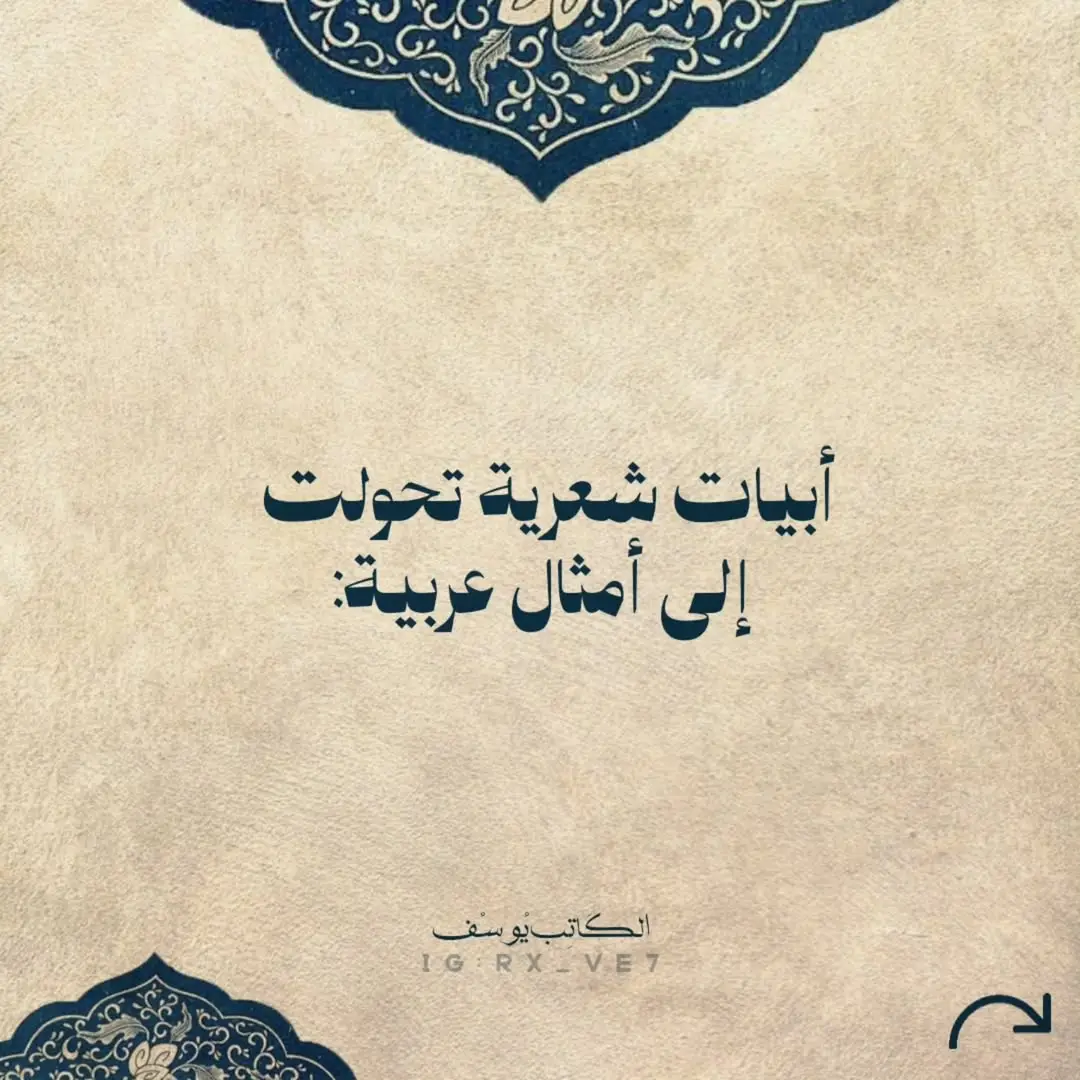 أبيات شعرية تحولت
إلى أمثال عربية:
الكاتب يُوسْف
IG:RX_VE7